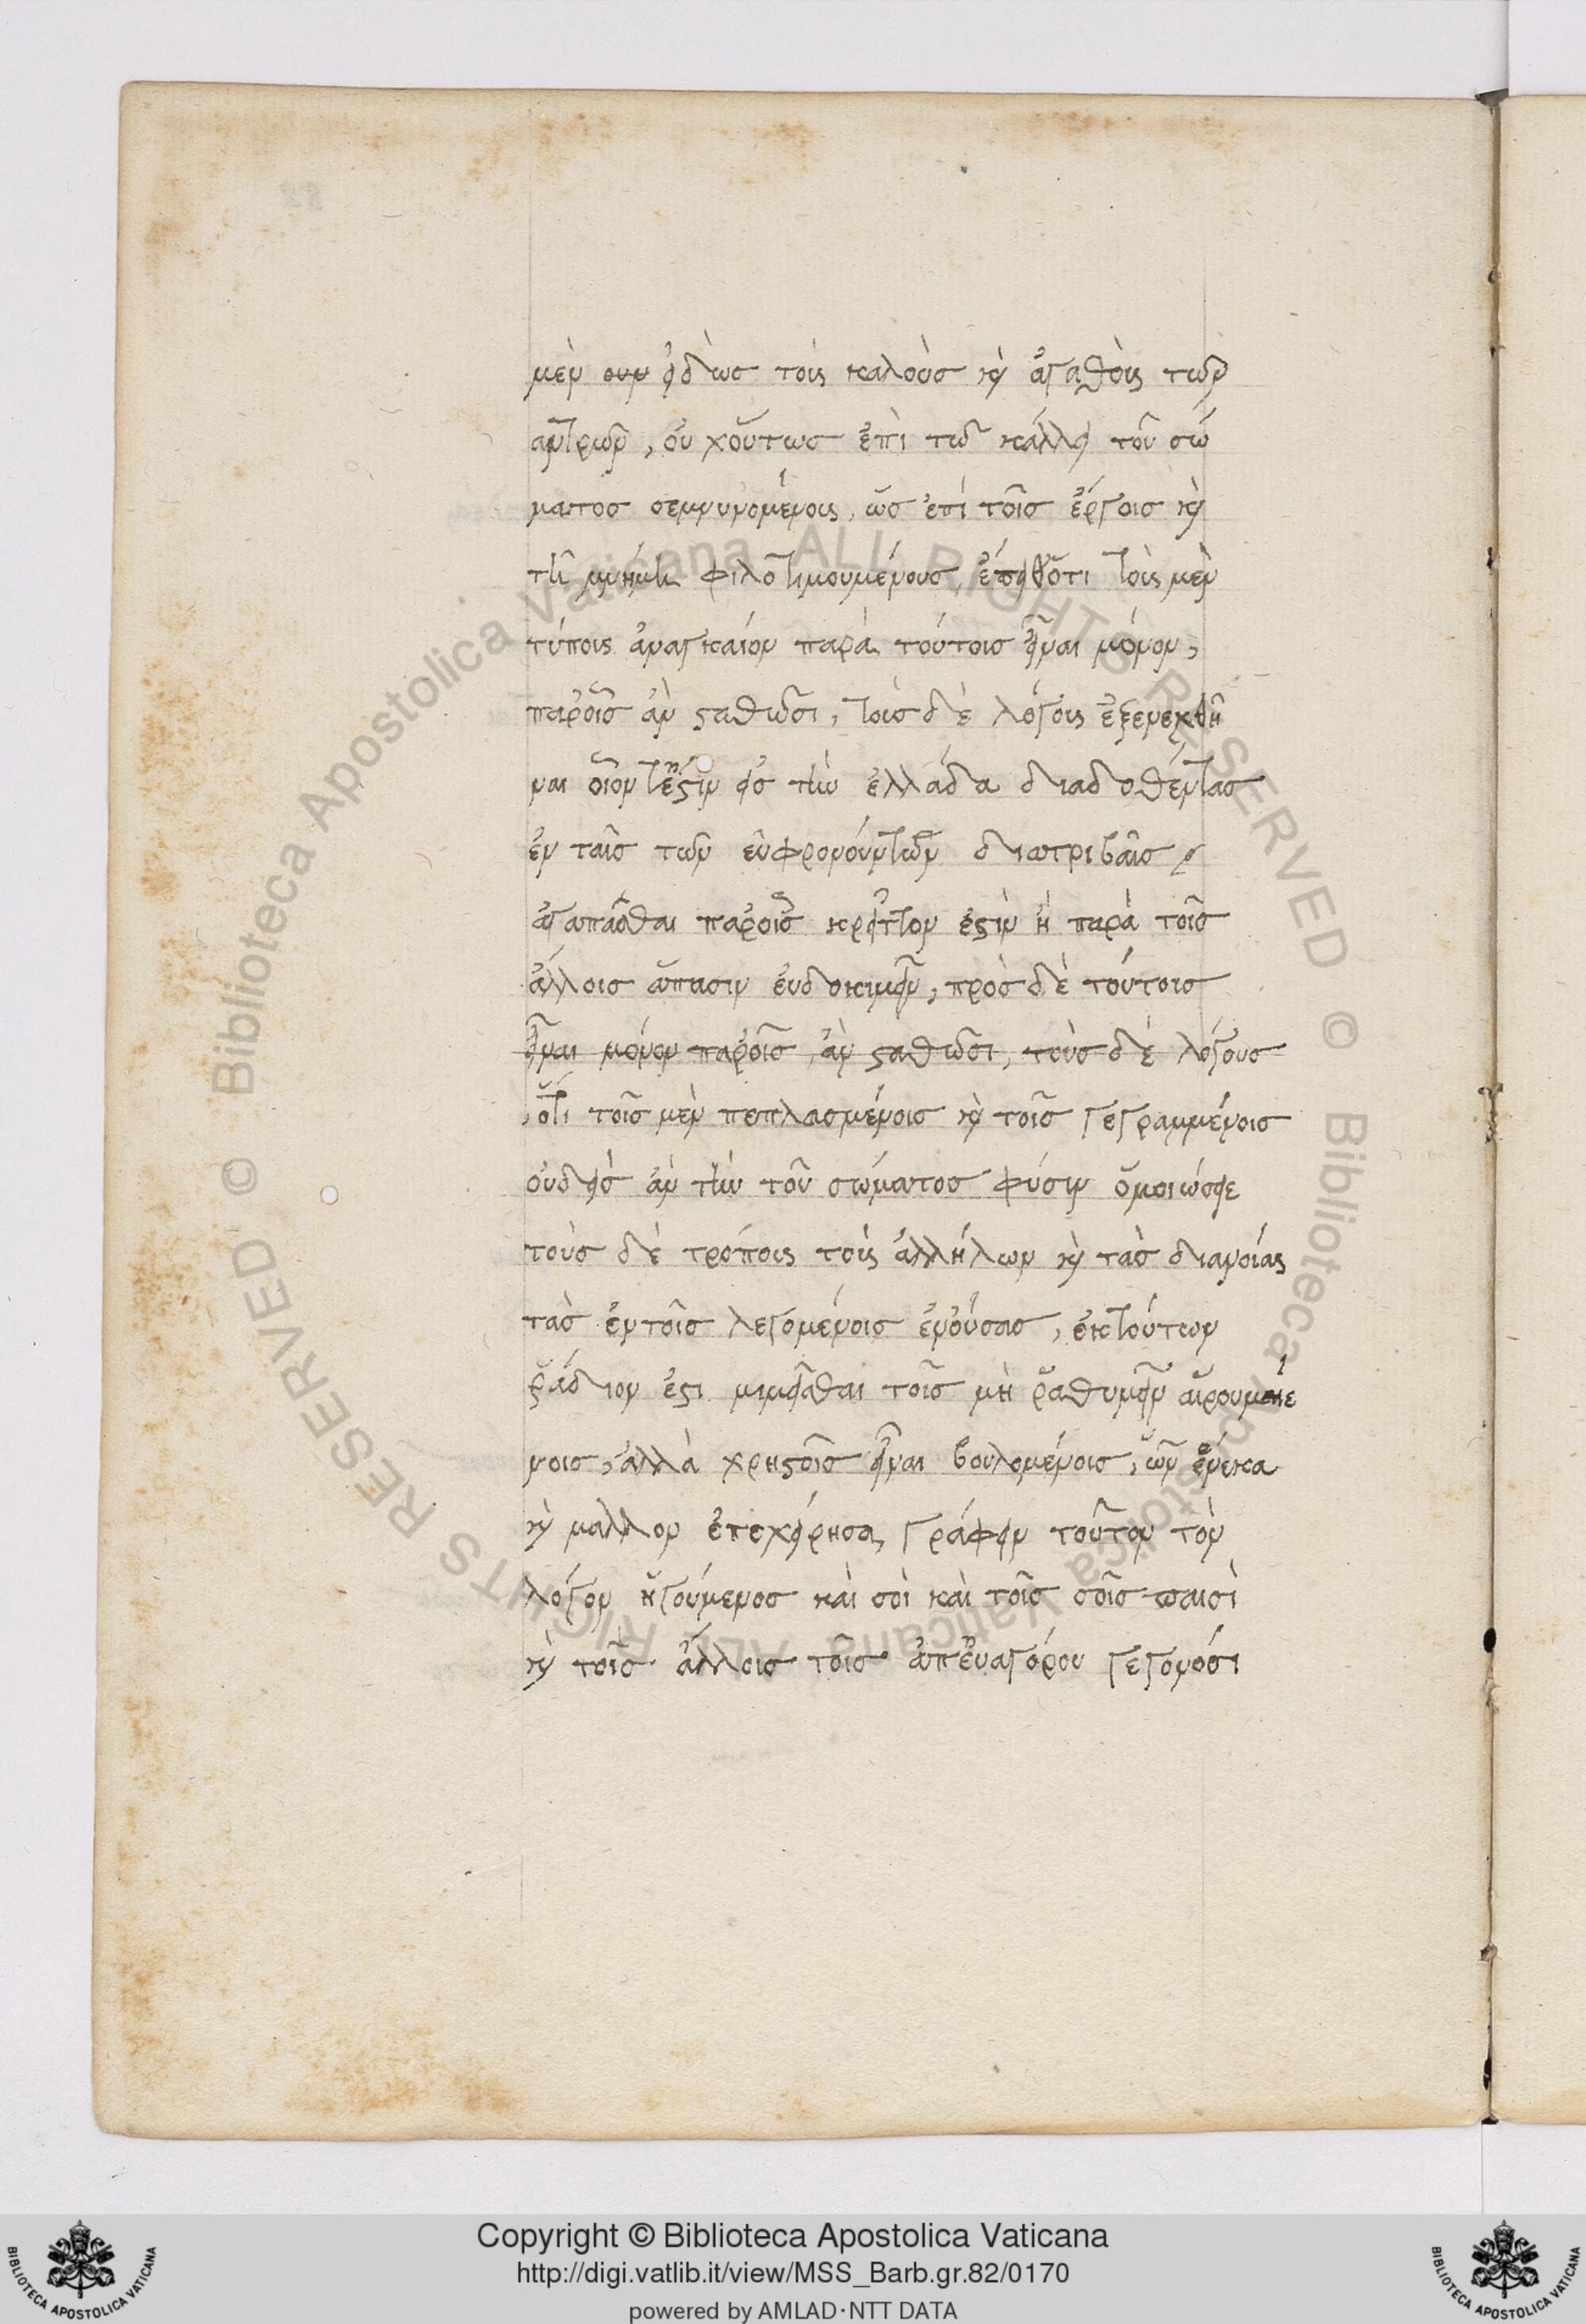 μὲν ουν εἰδὼς τοὺς καλοὺσ κὶ ἀγαθοὺς τῶν
ἀνδρῶν, οὐ χοὕτωσ ἐπὶ τῶ κάλλει τοῦ σώ
ματοσ σεμνυνομένους, ὡσ ἐπί τοῖσ ἔργοισ κὶ
τῆ μνήμη φιλοτιμουμένουσ, ὅτι τοὺς μὲν
τύπους ἀναγκαίον παρὰ τούτοισ εἶναι μόνον,
παρ' οἷσ ἀν σταθῶσι, τοὺσ δὲ λόγους ἐξενεχθῆ
ναι οἷόν τ' ἐστὶν εἰσ τὴν ἑλλάδα διαδοθέντασ
ἐν ταῖσ τῶν εὖ φρονούντων διατριβαῖσ
ἀγαπᾶσθαι παρ' οἷσ κρεῖττον ἐστὶν ἢ παρὰ τοῖσ
ἄλλοισ ἅπασιν εὐδοκιμεῖν, πρὸσ δὲ τούτοισ
εἶναι μόνον παρ' οἷσ ἀν σταθῶσι, τοὺσ δὲ λόγουσ
ὅτι τοῖσ μὲν πεπλασμένοισ κὶ τοῖσ γεγραμμένοισ
οὐδεὶσ ἀν τὴν τοῦ σώματοσ φύσιν ὁμοιώσειε
τοὺσ δὲ τρόπους τοὺς ἀλλήλων κὶ τὰσ διανοίας
τὰσ ἐν τοῖσ λεγομένοισ ἐνούσασ, ἐκ τούτων
ῥάδιον ἐστι μιμεῖσθαι τοῖσ μὴ ῥαθυμεῖν αἱρουμέ
νοισ, ἀλλὰ χρηστοῖσ εἶναι βουλομένοισ, ὧν ἕνεκα
κὶ μαλλον ἐπεχείρησα γράφειν τοῦτον τὸν
λόγον ἡγούμενοσ καὶ σοὶ καὶ τοῖσ σοῖσ παισὶ
κὶ τοῖσ ἄλλοισ τοῖσ ἀπ' εὐαγόρου γεγονόσι
Copyright © Biblioteca Apostolica Vaticana
http://digi.vatlib.it/view/MSS_Barb.gr.82/0170
powered by AMLAD·NTT DATA